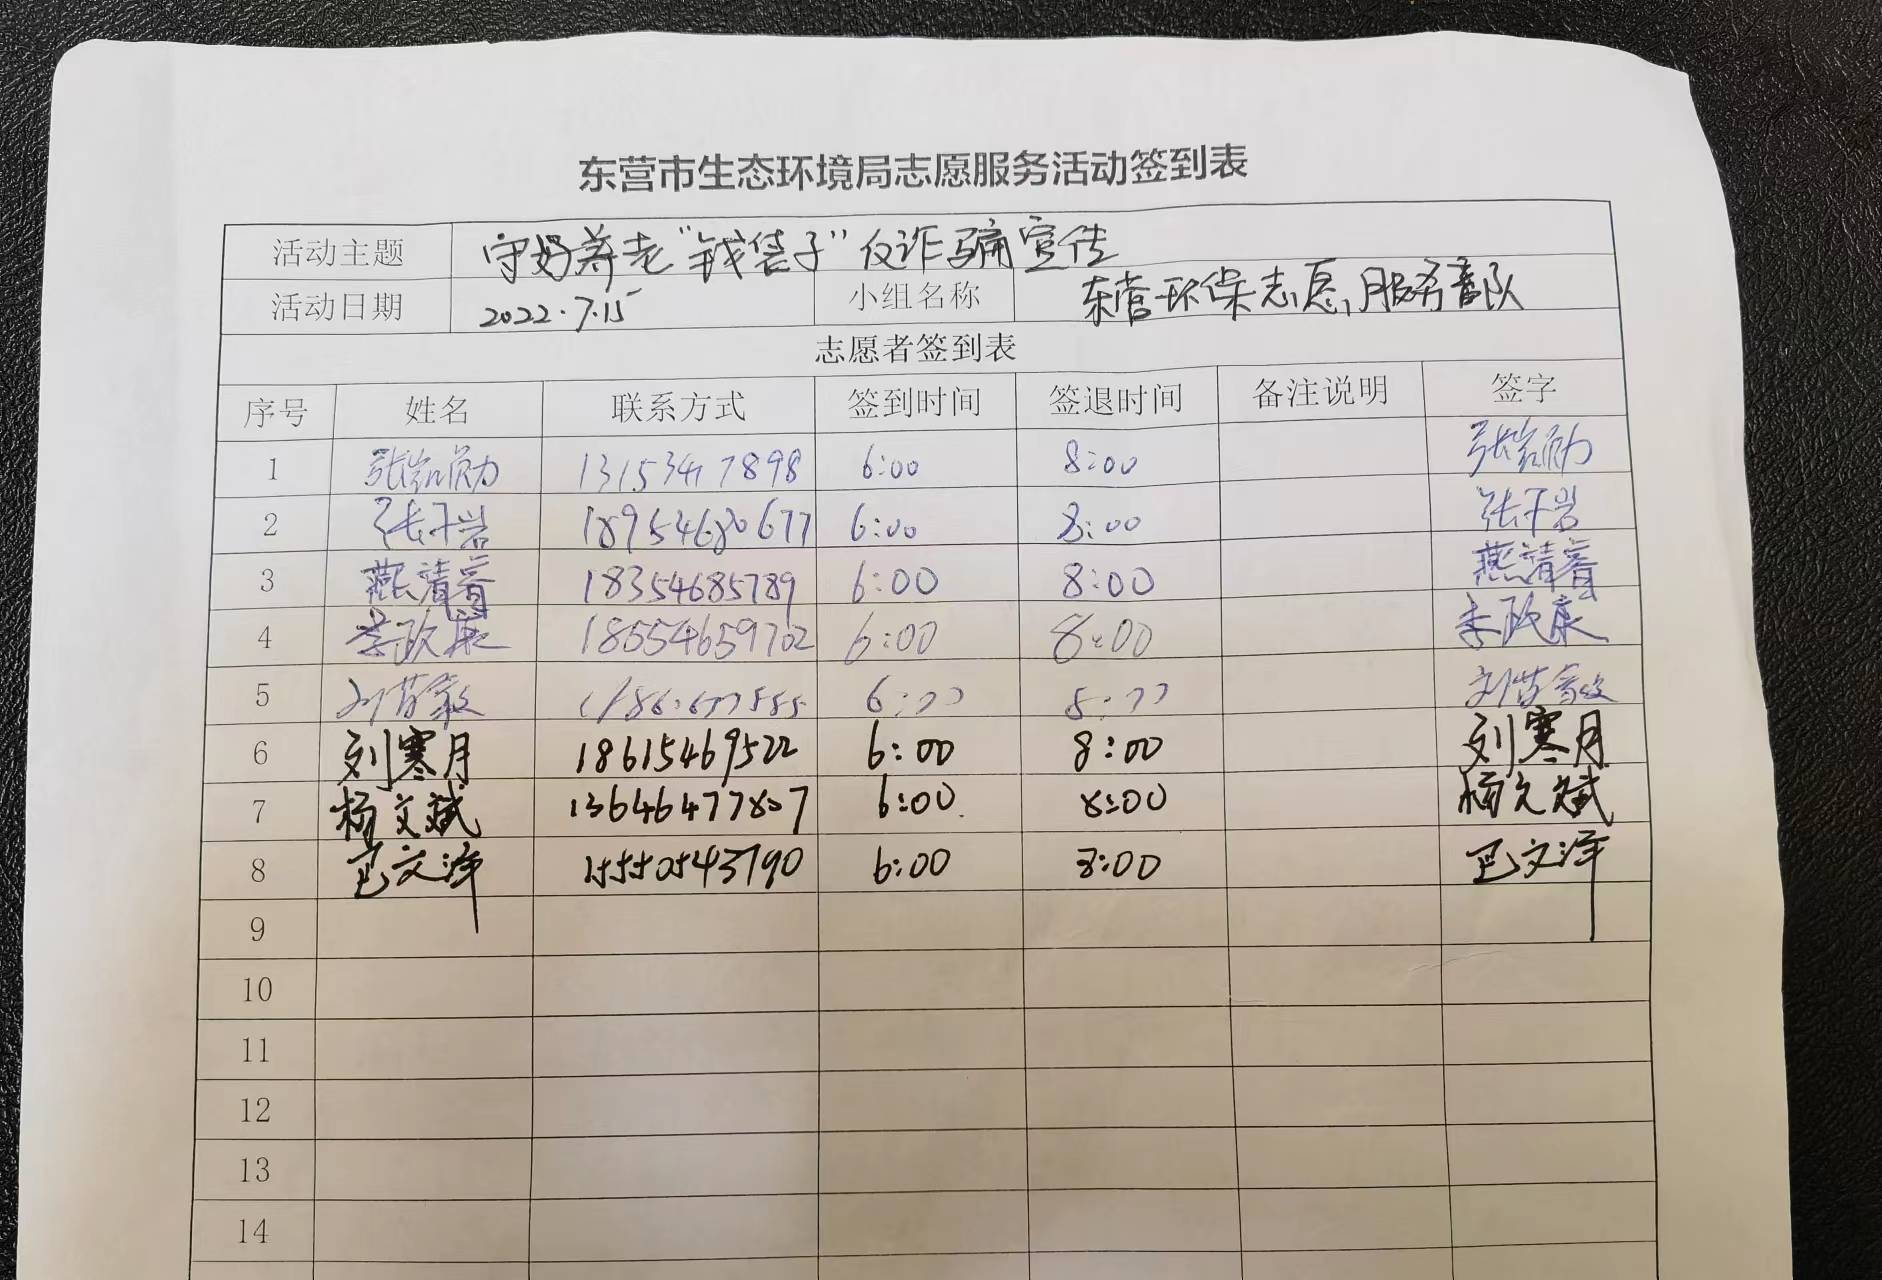 东营市生态环境局志愿服务活动签到表
活动主题 守好养老“钱袋子”反诈骗宣传
活动日期 2022.7.15 小组名称 东营环保志愿服务队
志愿者签到表
序号 姓名 联系方式 签到时间 签退时间 备注说明 签字
1 6:00 8:00
2 18954680677 6:00 8:00
3 燕清睿 18354685789 6:00 8:00 燕清睿
4 李政康 18654659702 6:00 8:00 李政康
5 6:00 8:00
6 刘寒月 18615469522 6:00 8:00 刘寒月
7 杨文斌 13646477807 6:00 8:00 杨文斌
8 文泽 15550543790 6:00 8:00 文泽
9
10
11
12
13
14